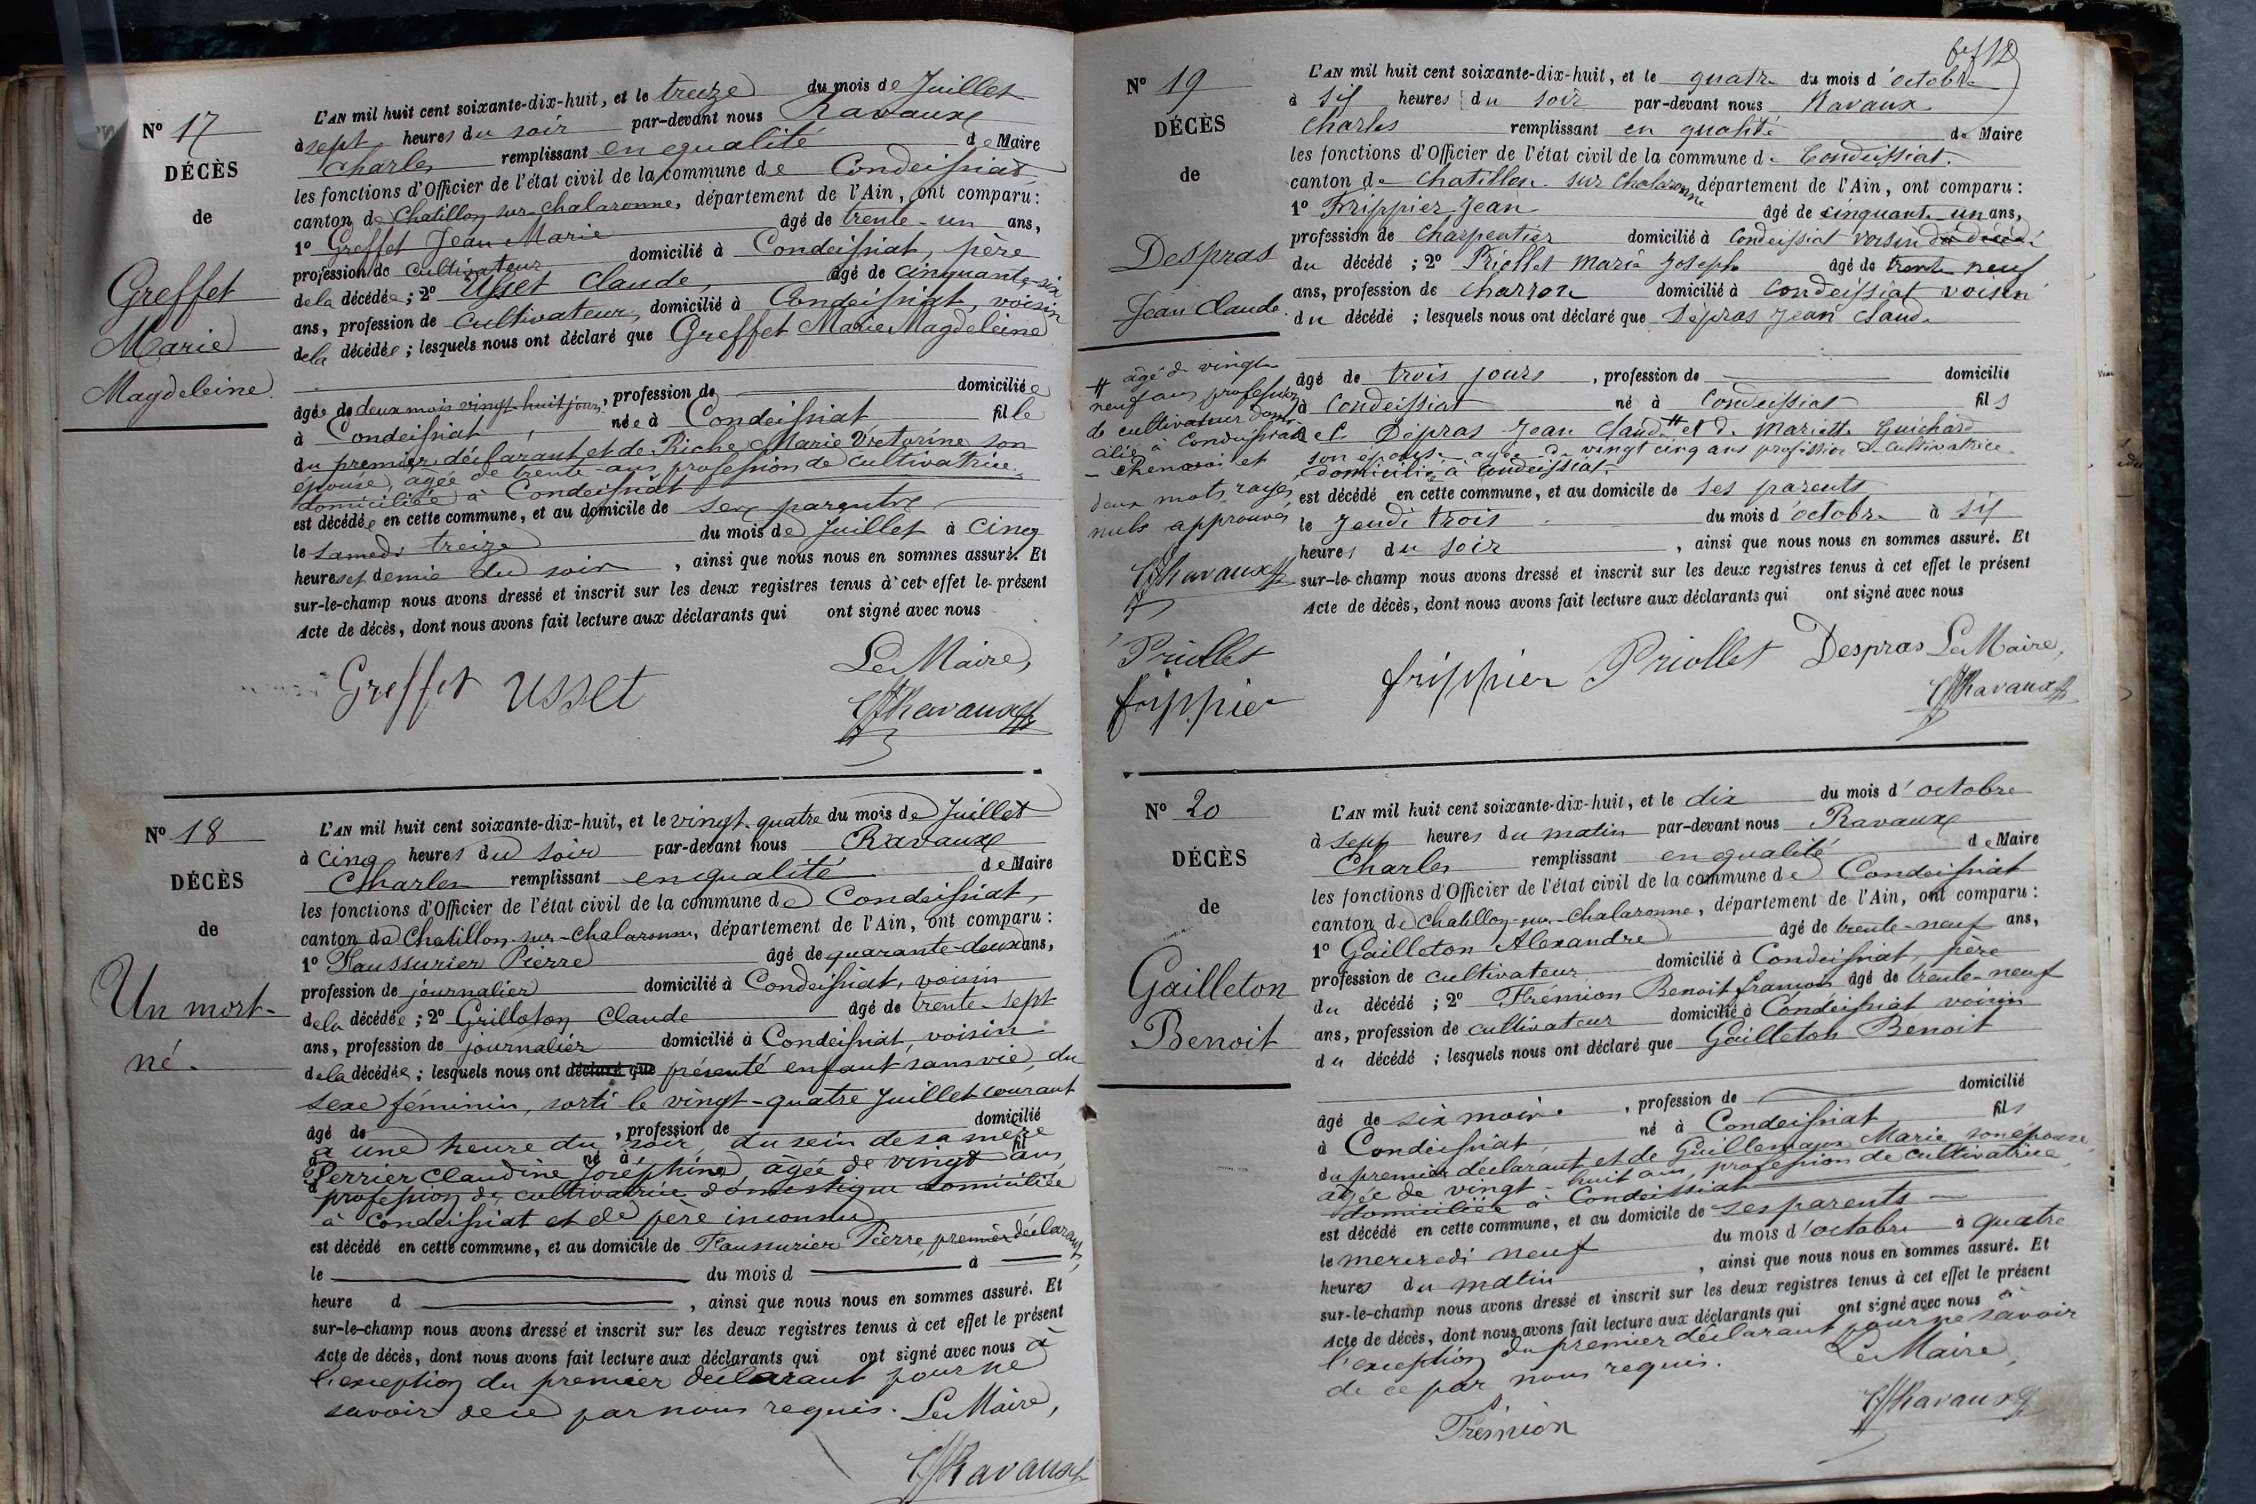 N° 17
DÉCÈS
de
Greffet
Marie
Magdeleine
L'AN mil huit cent soixante-dix-huit, et le treize du mois de Juillet
à sept heures du soir par-devant nous Ravaux
Charles remplissant en qualité de Maire
les fonctions d'Officier de l'état civil de la commune de Condeissiat
canton de Chatillon-sur-Chalaronne, département de l'Ain, ont comparu :
1° Greffet Jean Marie âgé de trente-un ans,
profession de cultivateur domicilié à Condeissiat, père
de la décédée ; 2° Usset Claude, âgé de cinquante-six
ans, profession de cultivateur, domicilié à Condeissiat, voisin
de la décédée ; lesquels nous ont déclaré que Greffet Marie Magdeleine
âgée de deux mois vingt-huit jours, profession de domiciliée
à Condeissiat, née à Condeissiat fille
du premier déclarant et de Riche Marie Victorine son
épouse, âgée de trente ans, profession de cultivatrice,
domiciliée à Condeissiat
est décédée en cette commune, et au domicile de ses parents
le samedi treize du mois de Juillet à cinq
heures et demie du soir, ainsi que nous nous en sommes assuré. Et
sur-le-champ nous avons dressé et inscrit sur les deux registres tenus à cet effet le présent
Acte de décès, dont nous avons fait lecture aux déclarants qui ont signé avec nous
Le Maire,
Greffet Usset
Ravaux
N° 18
DÉCÈS
de
Un mort-
né.
L'AN mil huit cent soixante-dix-huit, et le vingt-quatre du mois de Juillet
à cinq heures du soir par-devant nous Ravaux
Charles remplissant en qualité de Maire
les fonctions d'Officier de l'état civil de la commune de Condeissiat,
canton de Chatillon-sur-Chalaronne, département de l'Ain, ont comparu :
1° Faussurier Pierre âgé de quarante-deux ans,
profession de journalier domicilié à Condeissiat, voisin
de la décédée ; 2° Grilloton Claude âgé de trente-sept
ans, profession de journalier domicilié à Condeissiat, voisin
de la décédée ; lesquels nous ont déclaré que présenté enfant sans vie, du
sexe féminin, sorti le vingt-quatre Juillet courant
âgé de , profession de domicilié
à une heure du soir, du sein de sa mère
à né à fil
Perrier Claudine Joséphine âgée de vingt ans
d
profession de cultivatrice domestique domiciliée
à Condeissiat et de père inconnu
est décédé en cette commune, et au domicile de Faussurier Pierre, premier déclarant,
le du mois d à
heure d , ainsi que nous nous en sommes assuré. Et
sur-le-champ nous avons dressé et inscrit sur les deux registres tenus à cet effet le présent
Acte de décès, dont nous avons fait lecture aux déclarants qui ont signé avec nous à
l'exception du premier déclarant pour ne
savoir de ce par nous requis. Le Maire,
Ravaux
N° 19
DÉCÈS
de
Despras
Jean Claude.
# âgé de vingt
neuf ans profession
de cultivateur domi-
cilié à Condeissiat
- Chenavoi et
deux mots rayés
nuls approuvés
Ravaux
Priollet
frippier
L'AN mil huit cent soixante-dix-huit, et le quatre du mois d'octobre
à six heures du soir par-devant nous Ravaux
Charles remplissant en qualité de Maire
les fonctions d'Officier de l'état civil de la commune de Condeissiat.
canton de Chatillon sur Chalaronne département de l'Ain, ont comparu :
1° Frippier Jean âgé de cinquante-un ans,
profession de Charpentier domicilié à Condeissiat voisin du décédé
du décédé ; 2° Priollet Marie Joseph âgé de trente neuf
ans, profession de charron domicilié à Condeissiat voisin
du décédé ; lesquels nous ont déclaré que Dépras Jean Claude
âgé de trois jours, profession de domicilié
à Condeissiat né à Condeissiat fils
de Dépras Jean Claude # et de Mariette Guichard
son épouse âgée de vingt cinq ans profession de cultivatrice
domiciliée à Condeissiat
est décédé en cette commune, et au domicile de ses parents
le Jeudi trois du mois d'octobre à six
heures du soir, ainsi que nous nous en sommes assuré. Et
sur-le-champ nous avons dressé et inscrit sur les deux registres tenus à cet effet le présent
Acte de décès, dont nous avons fait lecture aux déclarants qui ont signé avec nous
frippier Priollet Despras Le Maire,
Ravaux
N° 20
DÉCÈS
de
Gailleton
Benoit
L'AN mil huit cent soixante-dix-huit, et le dix du mois d'octobre
à sept heures du matin par-devant nous Ravaux
Charles remplissant en qualité de Maire
les fonctions d'Officier de l'état civil de la commune de Condeissiat
canton de Chatillon-sur-Chalaronne, département de l'Ain, ont comparu :
1° Gailleton Alexandre âgé de trente-neuf ans,
profession de cultivateur domicilié à Condeissiat, père
du décédé ; 2° Frémion Benoit françois âgé de trente-neuf
ans, profession de cultivateur domicilié à Condeissiat voisin
du décédé ; lesquels nous ont déclaré que Gailleton Benoit
âgé de six mois, profession de domicilié
à Condeissiat, né à Condeissiat fils
du premier déclarant et de Guillemaux Marie son épouse,
âgée de vingt-huit ans, profession de cultivatrice,
domiciliée à Condeissiat
est décédé en cette commune, et au domicile de ses parents
le mercredi neuf du mois d'octobre à quatre
heures du matin, ainsi que nous nous en sommes assuré. Et
sur-le-champ nous avons dressé et inscrit sur les deux registres tenus à cet effet le présent
Acte de décès, dont nous avons fait lecture aux déclarants qui ont signé avec nous à
l'exception du premier déclarant pour ne savoir
de ce par nous requis. Le Maire,
Frémion Ravaux